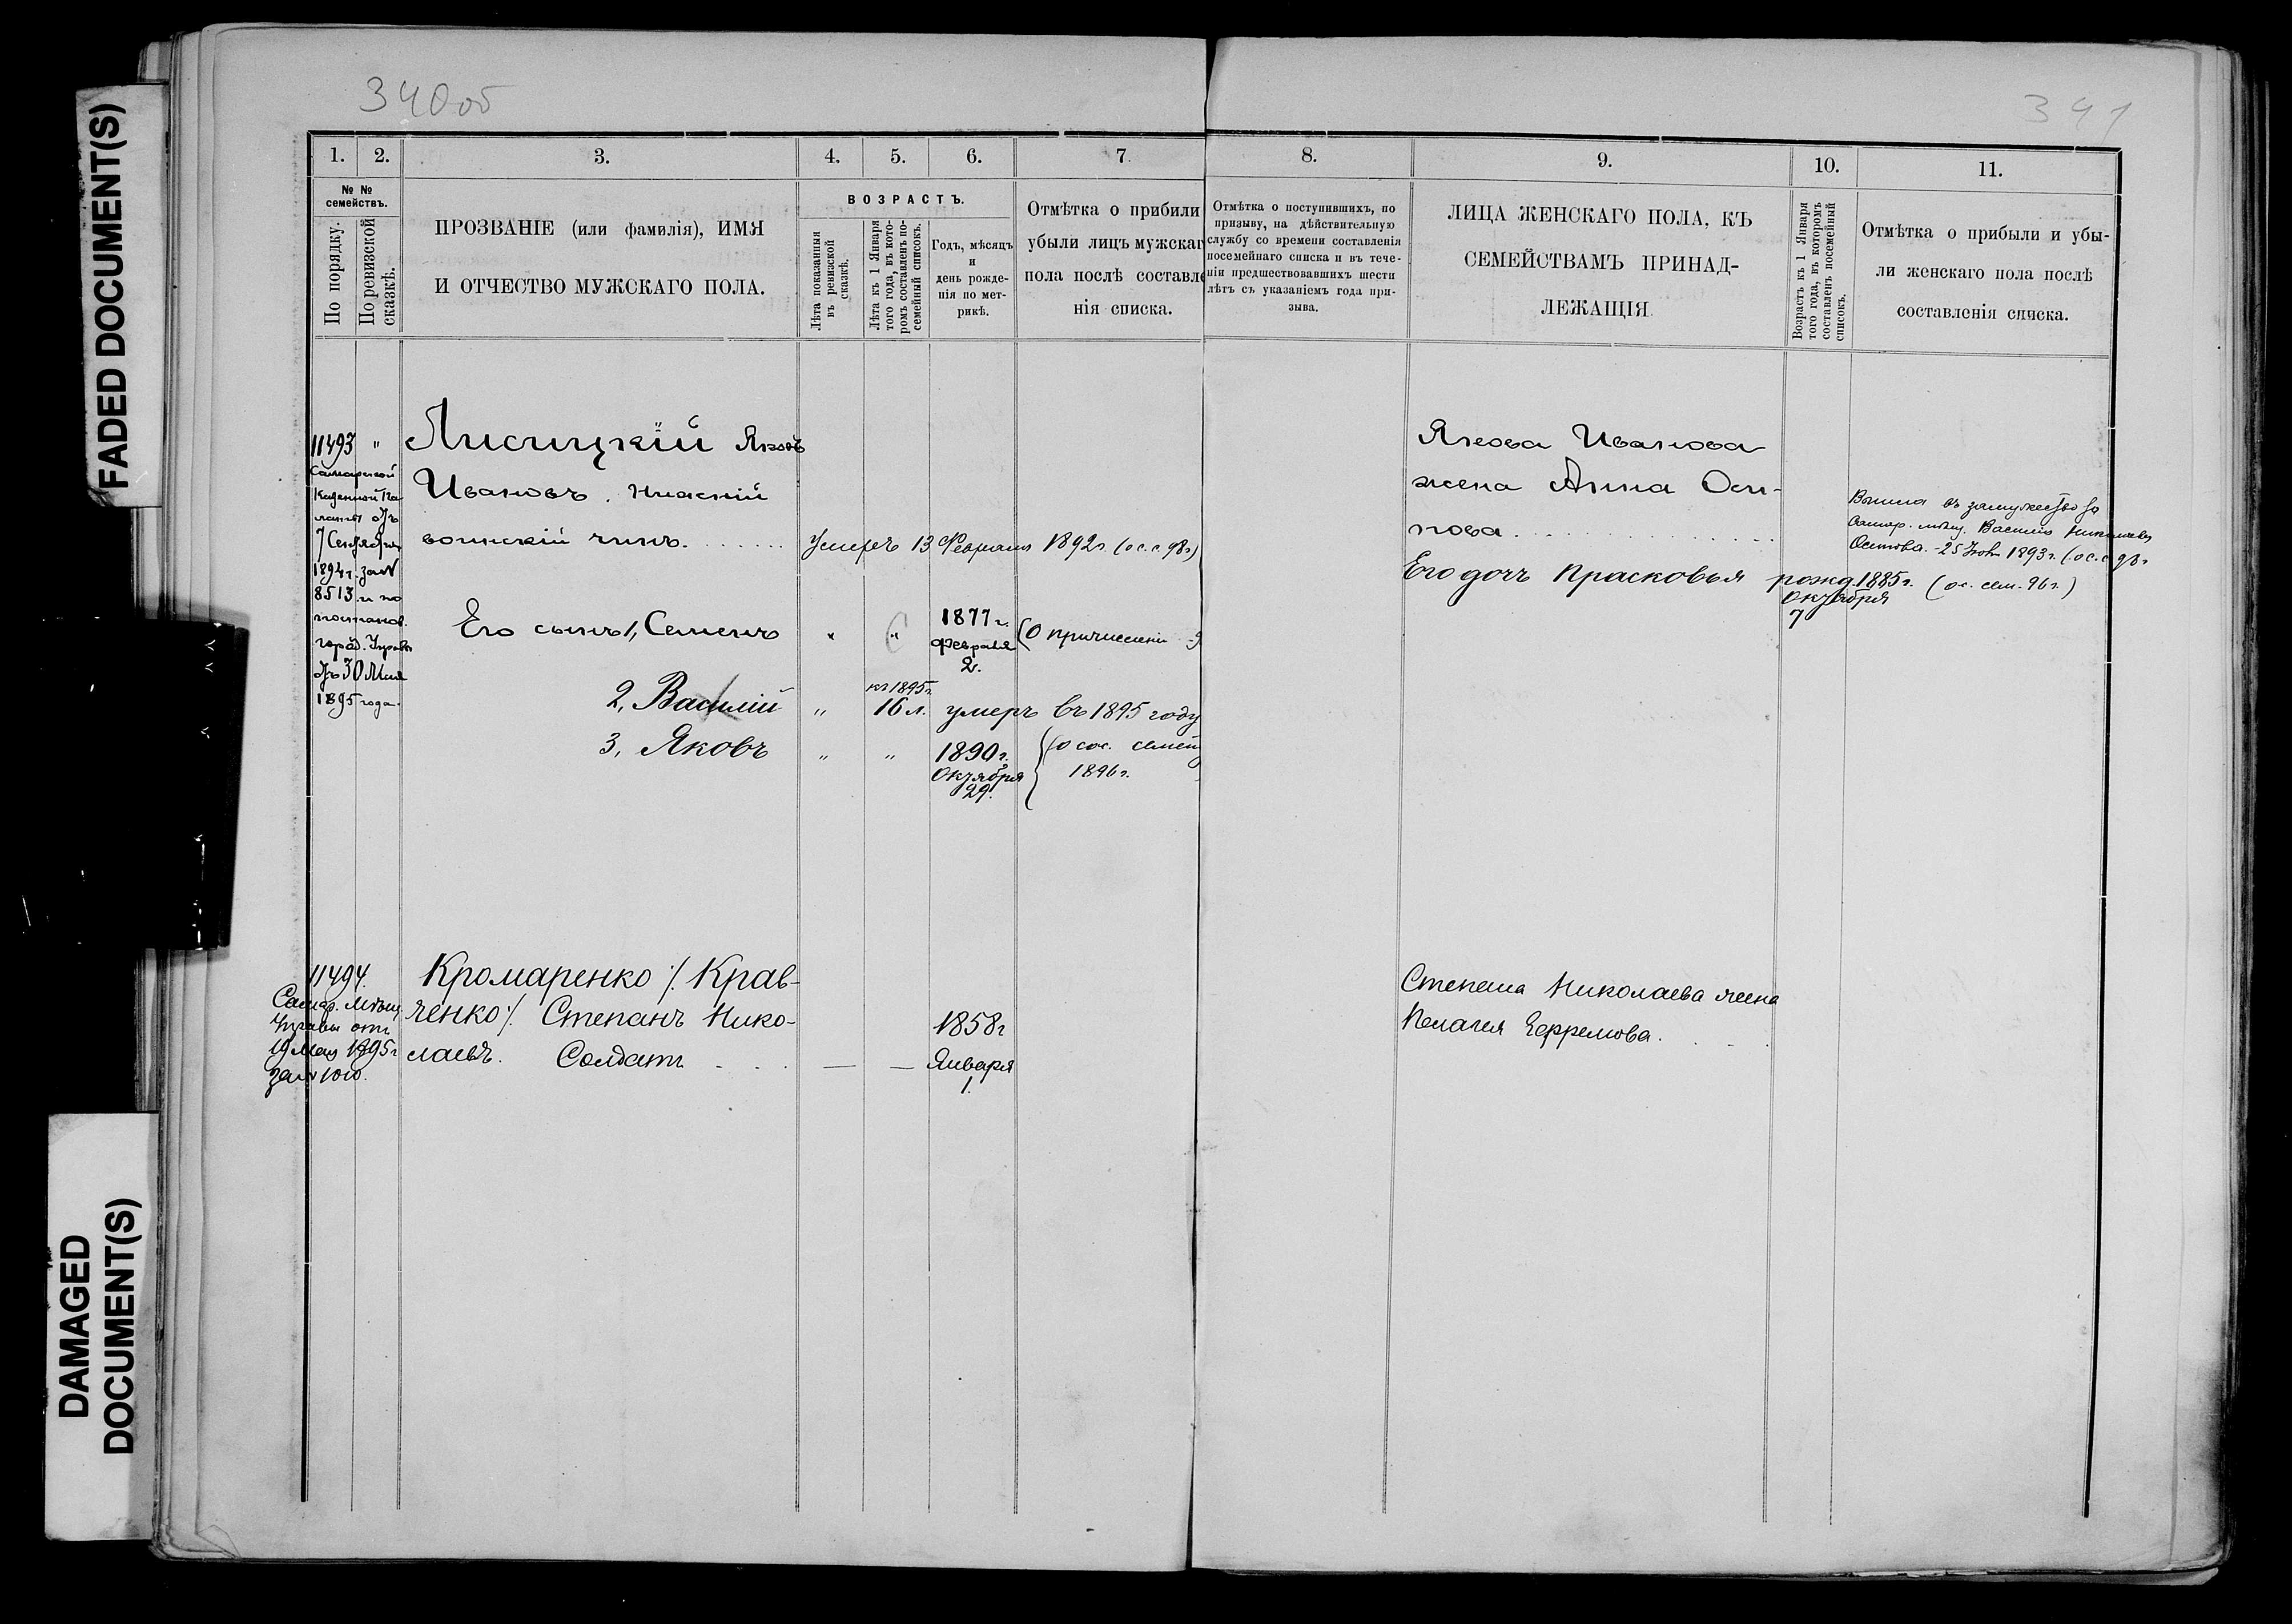 FADED DOCUMENT(S)
DAMAGED
DOCUMENT(S)
340об
1. 2. 3. 4. 5. 6. 7.
№ №
семействъ.
По порядку.
По ревизской
сказкѣ.
ПРОЗВАНІЕ (или фамилія), ИМЯ
И ОТЧЕСТВО МУЖСКАГО ПОЛА.
ВОЗРАСТЪ.
Лѣта показанныя
въ ревизской
сказкѣ.
Лѣта къ 1 Января
того года, въ кото-
ромъ составленъ по-
семейный списокъ.
Годъ, мѣсяцъ
и
день рожде-
нія по мет-
рикѣ.
Отмѣтка о прибыли
убыли лицъ мужскаг
пола послѣ составле
нія списка.
11493 "
Самарской
Казенной Па
латы отъ
7 Сентября
1894 г. за №
8513 и по
постанов.
город. Управы
отъ 30 Мая
1895 года.
Лисицкій Яковъ
Ивановъ. Нижній
воинскій чинъ.
умеръ 13 Февраля 1892 г. (о с. с. 98 г.)
Его сынъ 1, Семенъ " " 1877 г.
Февраля
2.
(О причислении
2, Василій "
къ 1895 г.
16 л. умеръ въ 1895 году
3, Яковъ " " 1890 г.
Октября
29.
(о сос. семей
1896 г.
11494.
Самар. Мѣщ.
Управы отъ
19 Мая 1895 г
за № 1010.
Кромаренко /. Крав-
ченко /. Степанъ Нико-
лаевъ. Солдатъ . . . — —
1858 г
Января
1.
341
8. 9. 10. 11.
Отмѣтка о поступившихъ, по
призыву, на дѣйствительную
службу со времени составленія
посемейнаго списка и въ тече-
ніи предшествовавшихъ шести
лѣтъ съ указаніемъ года при-
зыва.
ЛИЦА ЖЕНСКАГО ПОЛА, КЪ
СЕМЕЙСТВАМЪ ПРИНАД-
ЛЕЖАЩІЯ.
Возрастъ къ 1 Января
того года, въ которомъ
составленъ посемейный
списокъ.
Отмѣтка о прибыли и убы-
ли женскаго пола послѣ
составленія списка.
Якова Иванова
жена Анна Оси-
пова
Вышла въ замужество за
Самар. мѣщ. Василія Николаева
Осипова. - 25 1893 г. (о с. с. 98 г
Его дочь Прасковья рожд. 1885 г. (о с. сем. 96 г.)
Октября
7
Степана Николаева жена
Пелагея Ефремова.